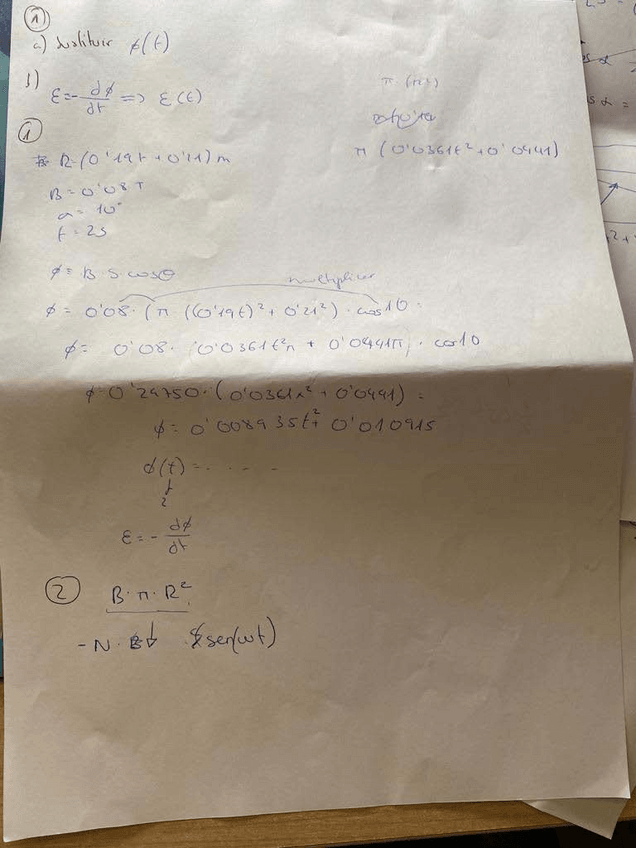 ①
a) sustituir ϕ(t)
b) ε = - dϕ/dt => ε(t)
π (πt)
①
R = (0'19t + 0'21) m
π (0'0361t² + 0'0441)
B = 0'08 T
α = 10°
t = 2s
ϕ = B · S cosθ
multiplicar
ϕ = 0'08 · (π ((0'19t)² + 0'21²) · cos10 =
ϕ = 0'08 · 0'0361t²π + 0'0441π · cos10
ϕ = 0'24750 · (0'0361t² + 0'0441) =
ϕ = 0'008935t² + 0'010915
ϕ(t) = . . . . .
2
ε = - dϕ/dt
② B · π · R²
- N · B sen(wt)